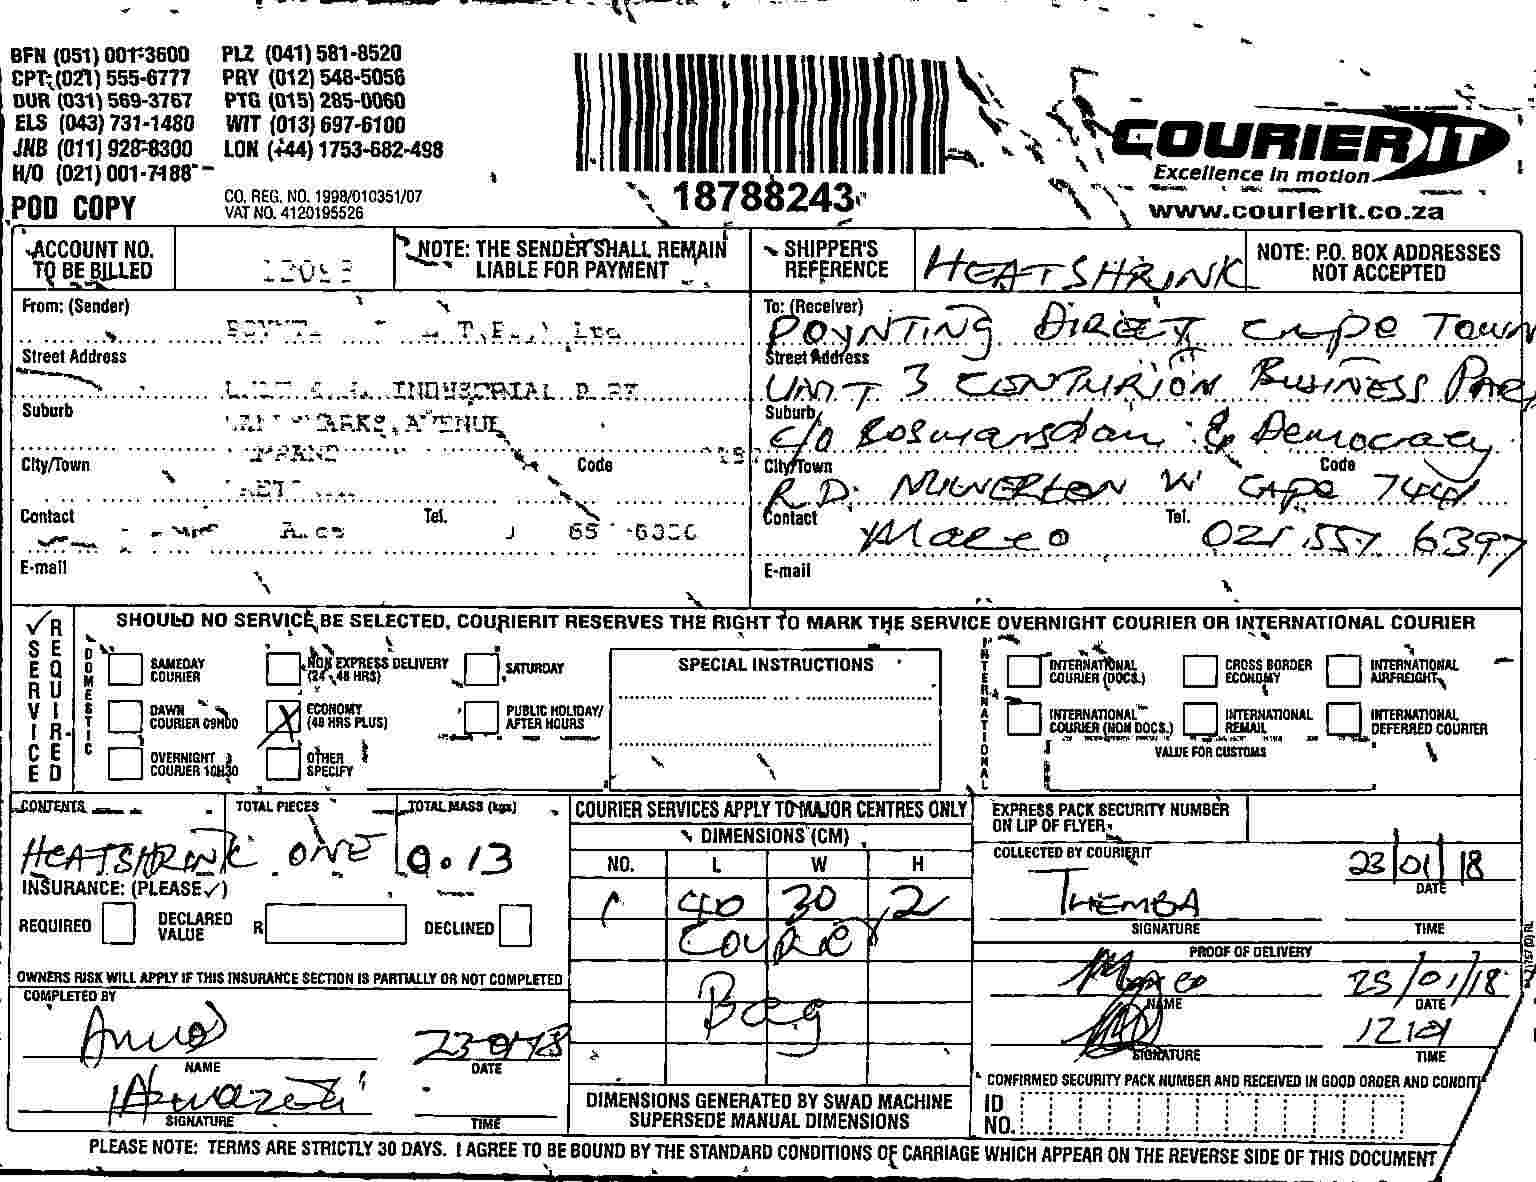 BFN (051) 001-3600 PLZ (041) 581-8520
CPT (021) 555-6777 PRY (012) 548-5056
DUR (031) 569-3767 PTG (015) 285-0060
ELS (043) 731-1480 WIT (013) 697-6100
JNB (011) 928-8300 LON (+44) 1753-682-498
H/O (021) 001-7188
POD COPY
CO. REG. NO. 1998/010351/07
VAT NO. 4120195526
18788243
COURIER IT
Excellence in motion
www.courierit.co.za
ACCOUNT NO. TO BE BILLED
NOTE: THE SENDER SHALL REMAIN LIABLE FOR PAYMENT
SHIPPER'S REFERENCE
HEATSHRINK
NOTE: P.O. BOX ADDRESSES NOT ACCEPTED
From: (Sender)
Ltd
Street Address
INDUSTRIAL
Suburb
AVENUE
City/Town
Code
Contact
Tel.
E-mail
To: (Receiver)
POYNTING DIRECT Cape Town
Street Address
UNIT 3 CENTURION BUSINESS PARK
Suburb
c/o Bosmansdam & Democracy
City/Town
Code
RD. MILNERTON W CAPE 7441
Contact
Tel.
Marco 021 557 6397
E-mail
SERVICE REQUIRED
SHOULD NO SERVICE BE SELECTED, COURIERIT RESERVES THE RIGHT TO MARK THE SERVICE OVERNIGHT COURIER OR INTERNATIONAL COURIER
DOMESTIC
SAMEDAY COURIER
NON EXPRESS DELIVERY (24 48 HRS)
SATURDAY
DAWN COURIER 09H00
X ECONOMY (48 HRS PLUS)
PUBLIC HOLIDAY/ AFTER HOURS
OVERNIGHT COURIER 10H30
OTHER SPECIFY
SPECIAL INSTRUCTIONS
INTERNATIONAL
INTERNATIONAL COURIER (DOCS.)
CROSS BORDER ECONOMY
INTERNATIONAL AIRFREIGHT
INTERNATIONAL COURIER (NON DOCS.)
INTERNATIONAL REMAIL
INTERNATIONAL DEFERRED COURIER
VALUE FOR CUSTOMS
CONTENTS TOTAL PIECES TOTAL MASS (kgs)
HEATSHRINK ONE 0.13
INSURANCE: (PLEASE ✓)
REQUIRED DECLARED VALUE R DECLINED
OWNERS RISK WILL APPLY IF THIS INSURANCE SECTION IS PARTIALLY OR NOT COMPLETED
COMPLETED BY
23 01 18
NAME DATE
SIGNATURE TIME
COURIER SERVICES APPLY TO MAJOR CENTRES ONLY
DIMENSIONS (CM)
NO. L W H
1 40 30 2
Courier
Bag
DIMENSIONS GENERATED BY SWAD MACHINE SUPERSEDE MANUAL DIMENSIONS
EXPRESS PACK SECURITY NUMBER ON LIP OF FLYER
COLLECTED BY COURIERIT
THEMBA 23/01/18
DATE
SIGNATURE TIME
PROOF OF DELIVERY
Marco 25/01/18
NAME DATE
SIGNATURE TIME
CONFIRMED SECURITY PACK NUMBER AND RECEIVED IN GOOD ORDER AND CONDIT
ID NO.
PLEASE NOTE: TERMS ARE STRICTLY 30 DAYS. I AGREE TO BE BOUND BY THE STANDARD CONDITIONS OF CARRIAGE WHICH APPEAR ON THE REVERSE SIDE OF THIS DOCUMENT